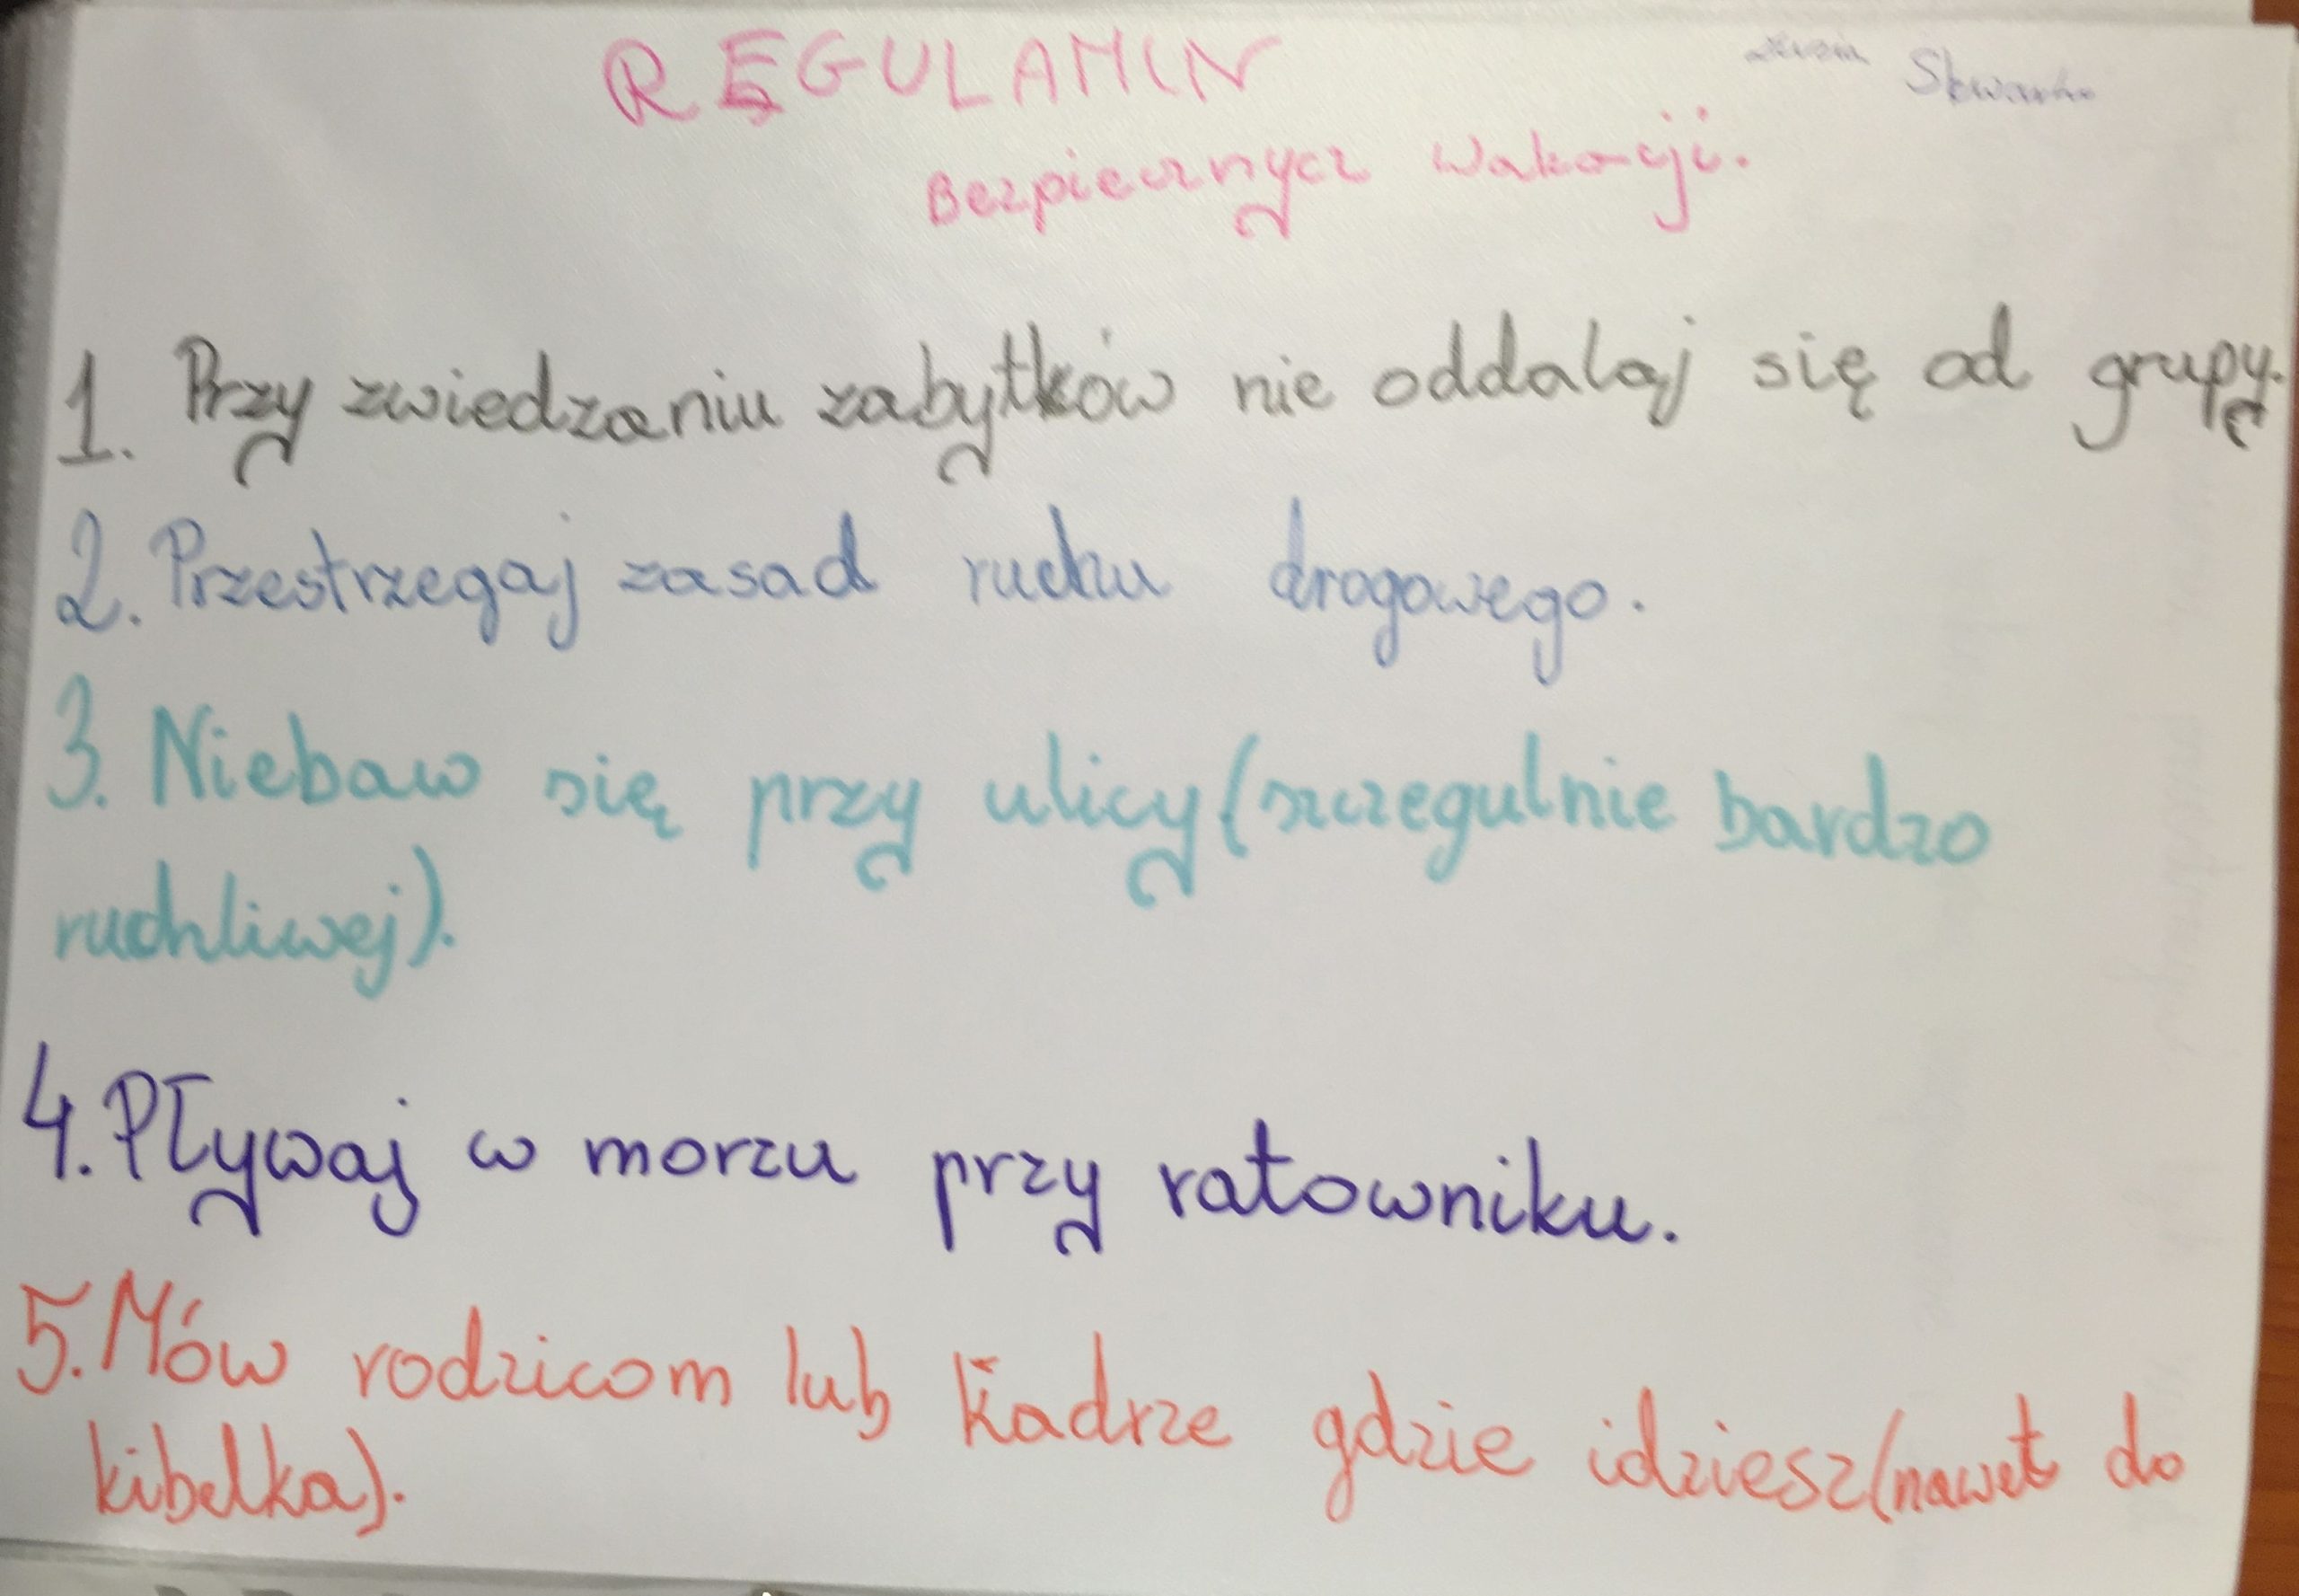 REGULAMIN
Zuzia Skwarko
Bezpiecznycz wakacji.
1. Przy zwiedzaniu zabytków nie oddalaj się od grupy.
2. Przestrzegaj zasad ruchu drogowego.
3. Niebaw się przy ulicy (szczegulnie bardzo
ruchliwej).
4. Pływaj w morzu przy ratowniku.
5. Mów rodzicom lub kadrze gdzie idziesz (nawet do
kibelka).